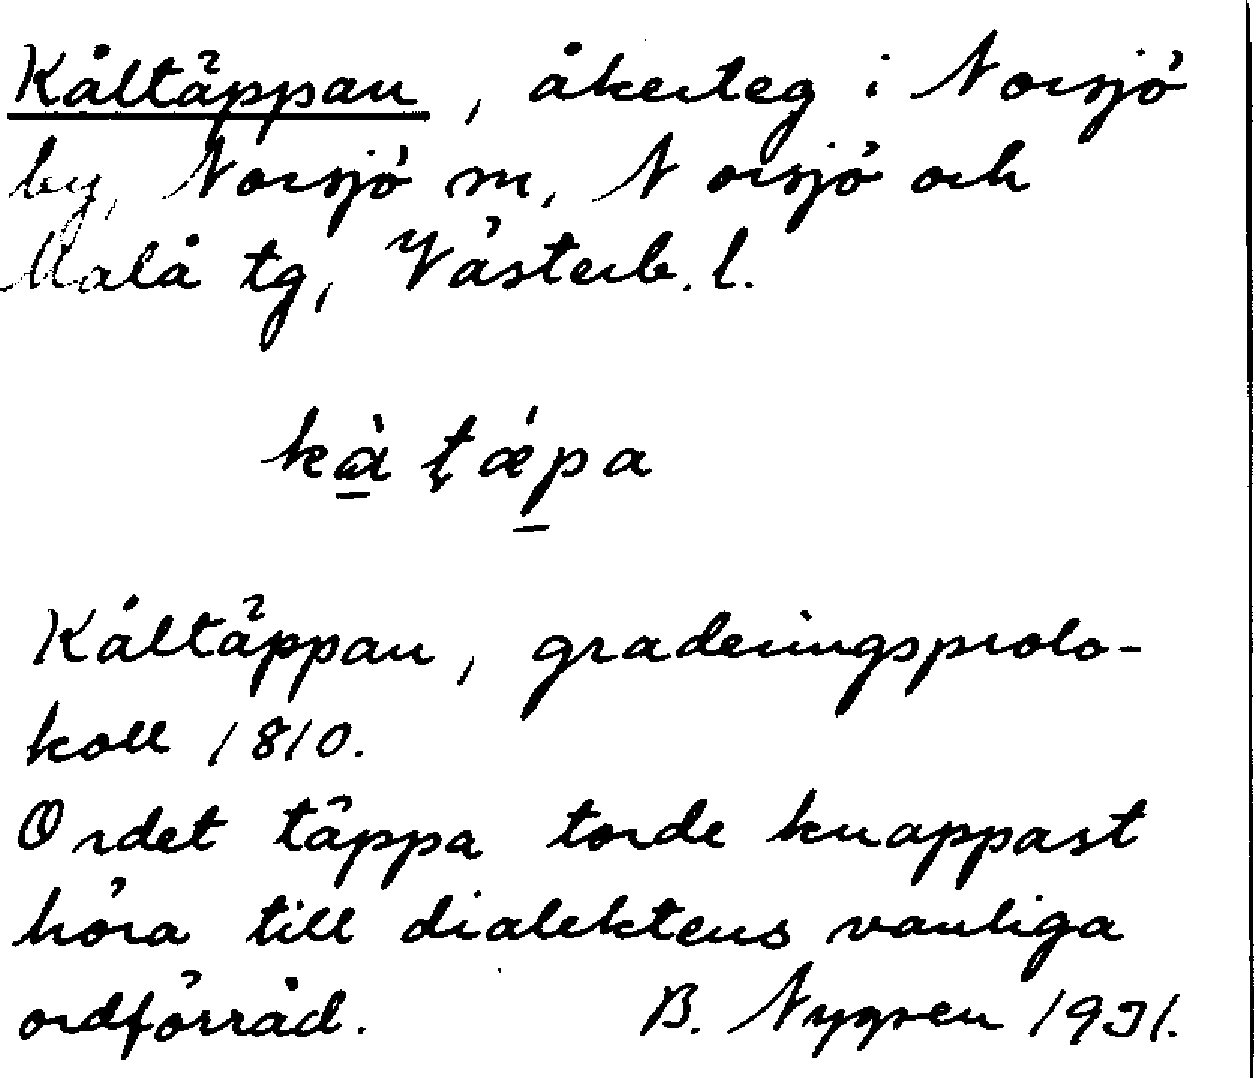 Kåltäppan, åkerteg i Norsjö
by, Norsjö m, Norsjö och
Malå tg, Västerb. l.
kà̱ ƫæ̀p̱a
Kåltäppan, graderingsproto-
koll 1810.
Ordet täppa torde knappast
höra till dialektens vanliga
ordförråd. B. Nygren 1931.